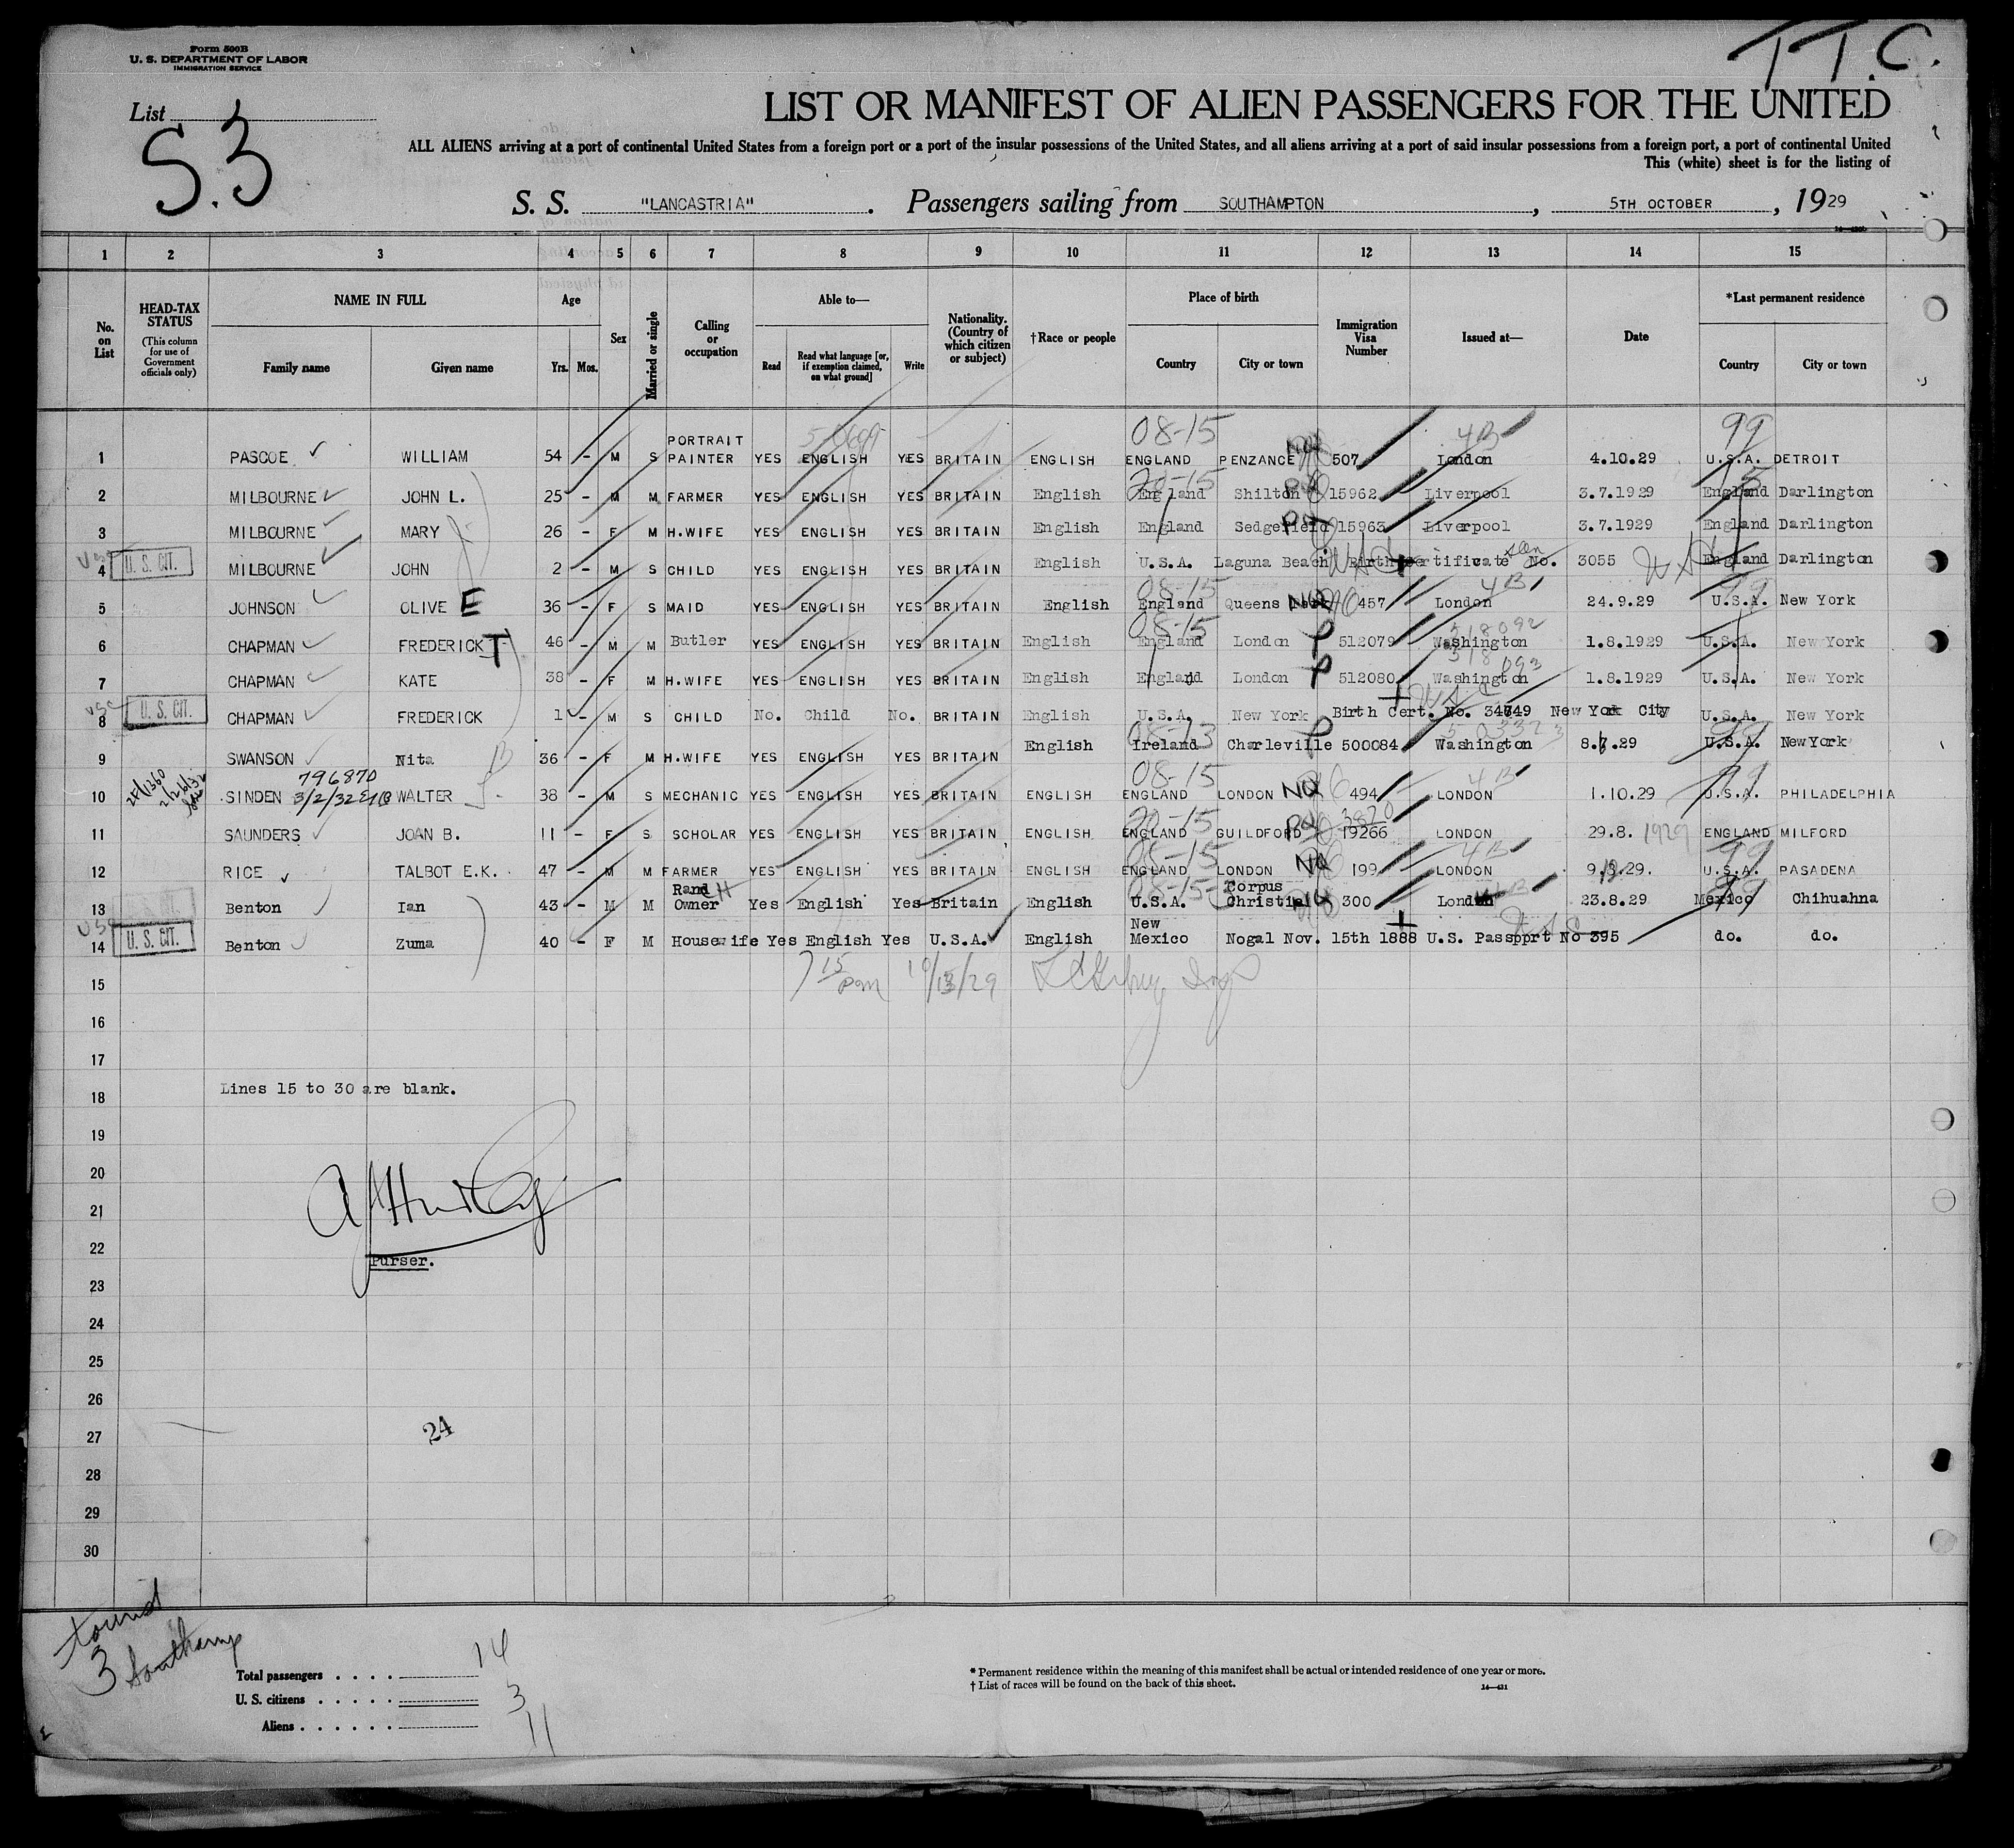 Form 500B
U. S. DEPARTMENT OF LABOR
IMMIGRATION SERVICE
T.T.C.
List
S.3
LIST OR MANIFEST OF ALIEN PASSENGERS FOR THE UNITED
ALL ALIENS arriving at a port of continental United States from a foreign port or a port of the insular possessions of the United States, and all aliens arriving at a port of said insular possessions from a foreign port, a port of continental United
This (white) sheet is for the listing of
S. S. "LANCASTRIA". Passengers sailing from SOUTHAMPTON, 5TH OCTOBER, 1929
1 2 3 4 5 6 7 8 9 10 11 12 13 14 15
No. on List
HEAD-TAX STATUS (This column for use of Government officials only)
NAME IN FULL
Family name Given name
Age
Yrs. Mos.
Sex
Married or single
Calling or occupation
Able to—
Read Read what language [or, if exemption claimed, on what ground] Write
Nationality. (Country of which citizen or subject)
†Race or people
Place of birth
Country City or town
Immigration Visa Number
Issued at—
Date
*Last permanent residence
Country City or town
08-15 4B 99
1 PASCOE WILLIAM 54 - M S PORTRAIT PAINTER YES ENGLISH YES BRITAIN ENGLISH ENGLAND PENZANCE NQ 507 London 4.10.29 U.S.A. DETROIT
2 MILBOURNE JOHN L. 25 - M M FARMER YES ENGLISH YES BRITAIN English England Shilton 15962 Liverpool 3.7.1929 England Darlington
3 MILBOURNE MARY 26 - F M H.WIFE YES ENGLISH YES BRITAIN English England Sedgefield 15963 Liverpool 3.7.1929 England Darlington
4 U. S. CIT. MILBOURNE JOHN 2 - M S CHILD YES ENGLISH YES BRITAIN English U.S.A. Laguna Beach Birth Certificate No. 3055 England Darlington
08-15 4B
5 JOHNSON OLIVE E 36 - F S MAID YES ENGLISH YES BRITAIN English England Queens NQ 457 London 24.9.29 U.S.A. New York
08-15 518092
6 CHAPMAN FREDERICK T 46 - M M Butler YES ENGLISH YES BRITAIN English England London P 512079 Washington 1.8.1929 U.S.A. New York
518093
7 CHAPMAN KATE 38 - F M H.WIFE YES ENGLISH YES BRITAIN English England London P 512080 Washington 1.8.1929 U.S.A. New York
8 U. S. CIT. CHAPMAN FREDERICK 1 - M S CHILD No. Child No. BRITAIN English U.S.A. New York Birth Cert. No. 34649 New York City U.S.A. New York
9 SWANSON Nita 36 - F M H.WIFE YES ENGLISH YES BRITAIN English Ireland Charleville 500084 Washington 8.7.29 U.S.A. NewYork
796870
08-15 4B
10 SINDEN 3/2/32 WALTER 38 - M S MECHANIC YES ENGLISH YES BRITAIN ENGLISH ENGLAND LONDON NQ 494 LONDON 1.10.29 U.S.A. PHILADELPHIA
20-15 3820
11 SAUNDERS JOAN B. 11 - F S SCHOLAR YES ENGLISH YES BRITAIN ENGLISH ENGLAND GUILDFORD 19266 LONDON 29.8. 1929 ENGLAND MILFORD
08-15 4B 99
12 RICE TALBOT E.K. 47 - M M FARMER YES ENGLISH YES BRITAIN ENGLISH ENGLAND LONDON NQ 199 LONDON U.S.A. PASADENA
13 Benton Ian 43 - M M Rand H Owner Yes English Yes Britain English U.S.A. Corpus Christie 300 London 23.8.29 Mexico Chihuahna
14 U. S. CIT. Benton Zuma 40 - F M Housewife Yes English Yes U.S.A. English New Mexico Nogal Nov. 15th 1888 U.S. Passpprt No 395 do. do.
15 7 15 pm 10/13/29
16
17
18 Lines 15 to 30 are blank.
19
20
21
22
Purser.
23
24
25
26
27 24
28
29
30
tourist
3 Southamp
Total passengers 14
U. S. citizens 3
Aliens 11
* Permanent residence within the meaning of this manifest shall be actual or intended residence of one year or more.
† List of races will be found on the back of this sheet.
14—431